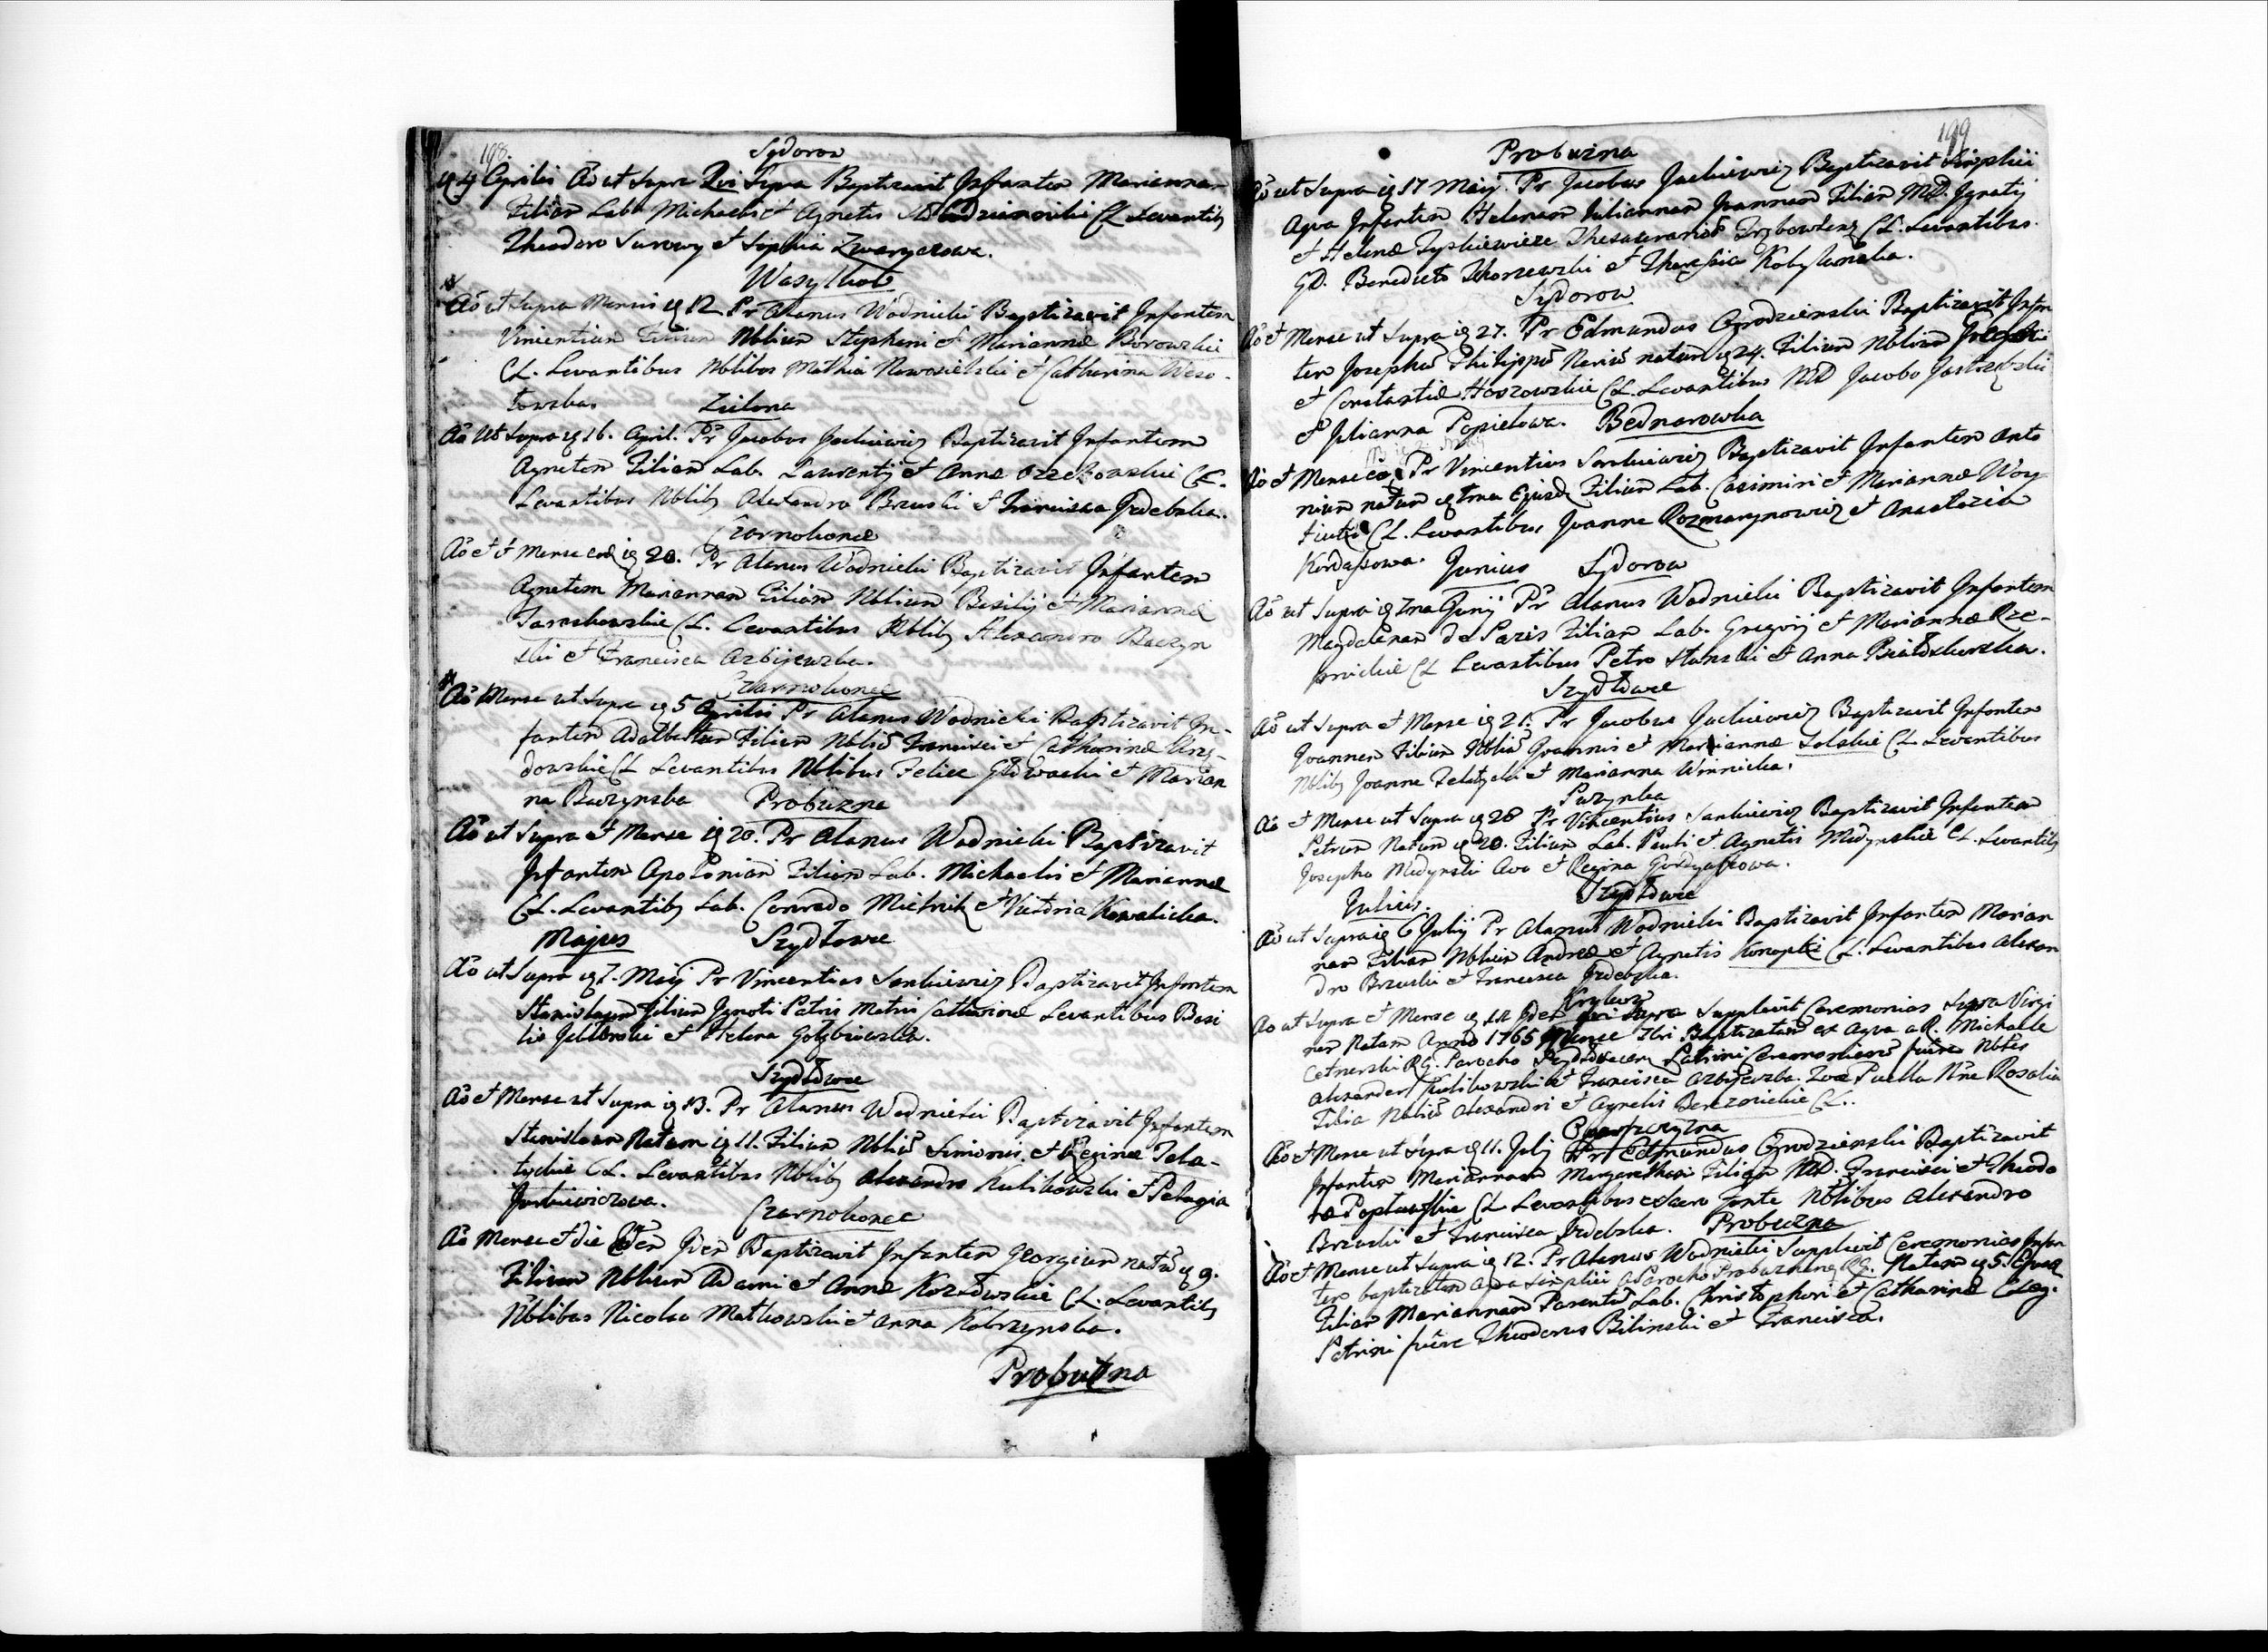 198.
Sydorow
4 Aprilis Ao ut Supra Qui Supra Baptizavit Infantem Mariannam
Filiam Lab. Michaelis et Agnetis CL Levantib
Theodoro Surowy et Sophia Zwaryczowa.
Wasylkow
Ao ut Supra Mensis 12 Pr Alanus Wodnicki Baptizavit Infantem
Vincentium Filium Nblium Stephani et Mariannæ Borowskie
CL. Levantibus Nblibus Mathia Nowosielski et Catharina Weso-
łowska. Zielona
Ao ut Supra 16. April. Pr Jacobus Jackiewicz Baptizavit Infantem
Agnetem Filiam Lab. Laurentij et Annæ Orzechowskie CL.
Levantibus Nblib Alexandro Brzuski et Francisca Jzdebska.
Czarnokonce
Ao et Mense eod 20. Pr Alanus Wodnicki Baptizavit Infantem
Agnetem Mariannam Filiam Nblium Basilij et Mariannæ
Taraskowskie CL. Levantibus Nblib Alexandro Baczyn
ski et Francisca Arbijewska.
Czarnokonce
Ao Mense ut Supra 5 Aprilis Pr Alanus Wodnicki Baptizavit In-
fantem Adalbertum Filium Nbliu Francisci et Catharinæ
dowskie CL Levantibus Nblibus Felice Głowacki et Marian
na Baczynska Probuzna
Ao ut Supra et Mense 20. Pr Alanus Wodnicki Baptizavit
Infantem Apoloniam Filiam Lab. Michaelis et Mariannæ
CL. Levantib Lab. Conrado Mielnik et Victoria Kowalicka.
Majus Szydłowce
Ao ut Supra 7. Maij Pr Vincentius Sankiewicz Baptizavit Infantem
Stanislaum Filium Ignoti Patris Matris Catharinæ Levantibus Basi
lio Jabłonski et Helena Gołębiowska.
Szydłowce
Ao et Mense ut Supra 13. Pr Alanus Wodnicki Baptizavit Infantem
Stanislaum Natum 11. Filium Nbliu Simonis et Reginæ Zela-
tyckie CL. Levantibus Nblib Alexandro Kulikowski et Pelagia
Jackiewiczowa. Czarnokonce
Ao Mense et die Idem Baptizavit Infantem Georgium natu 9.
Filium Nblium Adami et Annæ Kozłowskie CL. Levantib
Nblibus Nicolao Matkowski et Anna Kobrzynska.
Probuzna
199
Probuzna
Ao ut Supra 17 Maij. Pr Jacobus Jackiewicz Baptizavit Simplici
Aqua Infantem Helenam Juliannam Joannam Filiam MD. Ignatij
et Helenæ Tyszkiewicze CL. Levantibus.
GD. Benedicto et Theressia Kobylanska.
Sydorow
Ao et Mense ut Supra 27. Pr Edmundus Ogrodzienski Baptizavit Infan
tem Josephu Philippu Neriu natum 24. Filium Nblium
et Constantiæ CL. Levantibus MD Jacobo Jastrzębski
et Julianna Popielowa. Bednarowka
Ao et Mense eod Pr Vincentius Sankiewicz Baptizavit Infantem Anto
nium natum Ejusd Filium Lab. Casimiri et Mariannæ Woy
CL. Levantibus Joanne Rozmarynowicz et Anastazia
Kordaszowa. Junius Sydorow
Ao ut Supra 7ma Junij Pr Alanus Wodnicki Baptizavit Infantem
Magdalenam de Pazis Filiam Lab. Gregorij et Mariannæ Rze-
CL Levantibus Petro et Anna
Szydłowce
Ao ut Supra et Mense 21. Pr Jacobus Jackiewicz Baptizavit Infantem
Joannem Filium Nbliu Joannis et Mariannæ CL. Levantibus
Nblib Joanne Zelatycki et Marianna Winnicka.
Suzynka
Ao et Mense ut Supra 28 Pr Vincentius Sankiewicz Baptizavit Infantem
Petrum Natum 20. Filium Lab. Pauli et Agnetis Medynskie CL. Levantib
Josepho Medynski Avo et Regina
Julius. Szydłowce
Ao ut Supra 6 Julij Pr Alanus Wodnicki Baptizavit Infantem Marian
nam Filiam Nblium Andreæ et Agnetis Konopki CL. Levantibus Alexan
dro Brzuski et Francisca Jzdebska.
Ao ut Supra et Mense Idem qui Supra Supplevit Ceremonias Supra Virgi
nem Natam Anno 1765 Mense Baptizatam ex Aqua a R. Michaele
Cetnerski RG. Parocho Patrini Ceremoniaru fuere Nbles
Alexander Kulikowski et Francisca Arbijewska. Puella Nne Rosalia
Filia Nbliu Alexandri et Agnetis CL.
Ao et Mense ut Supra 11. Julij Pr Edmundus Ogrodzienski Baptizavit
Infantem Mariannam Margaritham Filiam MD. Francisci et Theodo
ræ Popławskie CL Levantibus e Sacro Fonte Nblibus Alexandro
Brzuski et Francisca Jzdebska. Probuzna
Ao et Mense ut Supra 12. Pr Alanus Wodnicki Supplevit Ceremonias Infan
tem baptizatam Aqua simplici a Parocho RG. Natam 5.
Filiam Mariannam Parentu Lab. Christophori et Catharinæ
Patrini fuere Theodorus Bilinski et Francisca.